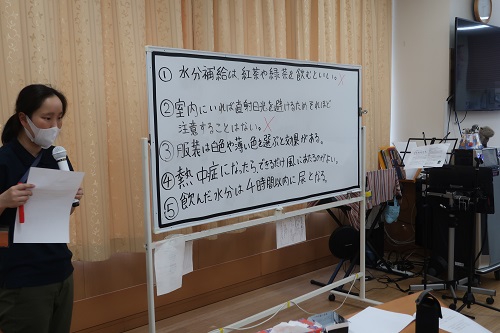 ① 水分補給は、紅茶や緑茶を飲むといい。×
② 室内にいれば直射日光を避けるためそれほど
注意することはない。×
③ 服装は白色や薄い色を選ぶと効果がある。
④ 熱中症になったら、できるだけ風にあたるのがよい。
⑤ 飲んだ水分は4時間以内に尿となる。